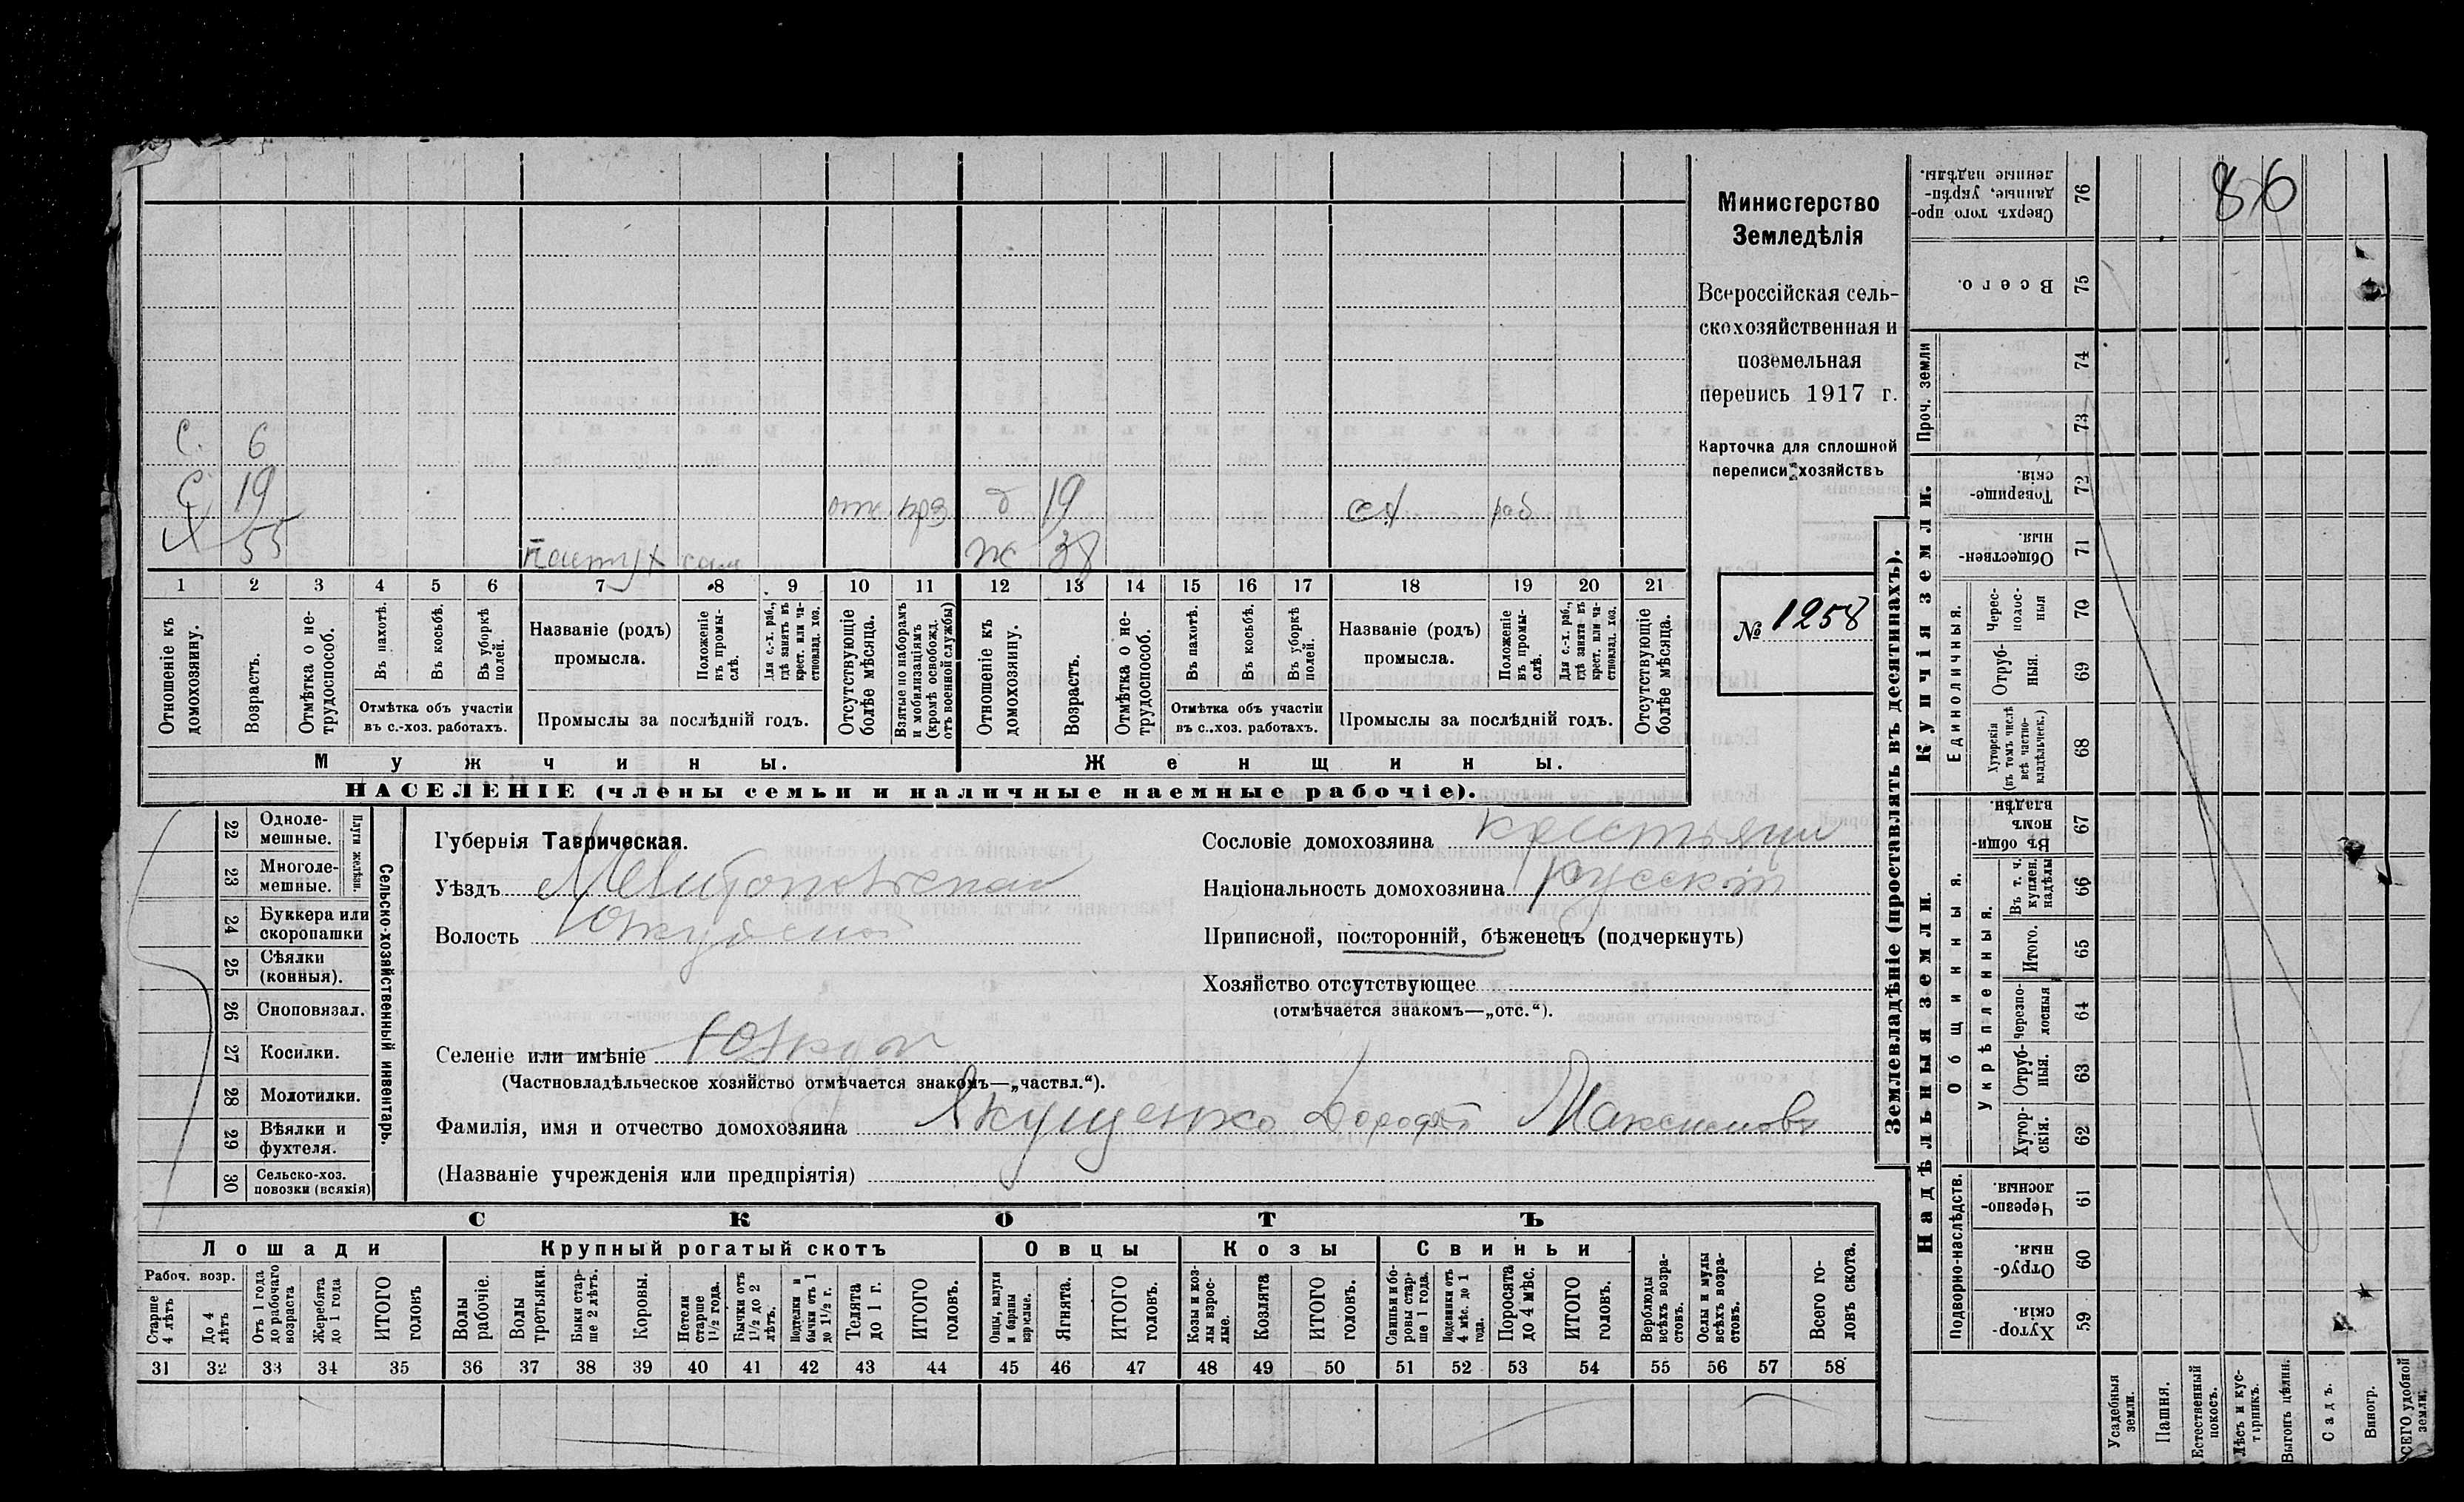 86
Министерство
Земледѣлія
Всероссійская сель-
скохозяйственная и
поземельная
перепись 1917 г.
Карточка для сплошной
переписи хозяйствъ
№ 1258
С. 6
С. 19 отс. д 19 раб
Х 55 пастух сам ж 38
1 2 3 4 5 6 7 8 9 10 11 12 13 14 15 16 17 18 19 20 21
Отношеніе къ домохозяину.
Возрастъ.
Отмѣтка о не-трудоспособ.
Въ пахотѣ.
Въ косьбѣ.
Въ уборкѣ полей.
Отмѣтка объ участіи
въ с.-хоз. работахъ.
Названіе (родъ)
промысла.
Положеніе въ промы-слѣ.
Для с.-х. раб., гдѣ занятъ въ крест. или ча-стновлад. хоз.
Промыслы за послѣдній годъ.
Отсутствующіе болѣе мѣсяца.
Взятые по наборамъ и мобилизаціямъ (кромѣ освобожд. отъ военной службы)
Отношеніе къ домохозяину.
Возрастъ.
Отмѣтка о не-трудоспособ.
Въ пахотѣ.
Въ косьбѣ.
Въ уборкѣ полей.
Отмѣтка объ участіи
въ с.-хоз. работахъ.
Названіе (родъ)
промысла.
Положеніе въ промы-слѣ.
Для с.-х. раб., гдѣ занята въ крест. или ча-стновлад. хоз.
Промыслы за послѣдній годъ.
Отсутствующіе болѣе мѣсяца.
Мужчины.
Женщины.
НАСЕЛЕНІЕ (члены семьи и наличные наемные рабочіе).
Сельско-хозяйственный инвентарь.
Плуги желѣзн.
22 Одноле-мешные.
23 Многоле-мешные.
24 Буккера или скоропашки
25 Сѣялки (конныя).
26 Сноповязал.
27 Косилки.
28 Молотилки.
29 Вѣялки и фухтеля.
30 Сельско-хоз. повозки (всякія)
Губернія Таврическая.
Уѣздъ Мелитопольскій
Волость
Сословіе домохозяина крестьянин
Національность домохозяина русскій
Приписной, посторонній, бѣженецъ (подчеркнуть)
Хозяйство отсутствующее
(отмѣчается знакомъ—„отс.“).
Селеніе или имѣніе
(Частновладѣльческое хозяйство отмѣчается знакомъ—„частвл.“).
Фамилія, имя и отчество домохозяина Якущенко Дорофей Максимовъ
(Названіе учрежденія или предпріятія)
СКОТЪ
Лошади
Крупный рогатый скотъ
Овцы
Козы
Свиньи
Рабоч. возр.
Старше 4 лѣтъ
До 4 лѣтъ
Отъ 1 года до рабочаго возраста
Жеребята до 1 года
ИТОГО головъ
Волы рабочіе.
Волы третьяки.
Быки стар-ше 2 лѣтъ.
Коровы.
Нетели старше 1½ года.
Бычки отъ 1½ до 2 лѣтъ.
Подтелки и бычки отъ 1 до 1½ г.
Телята до 1 г.
ИТОГО головъ.
Овцы, валухи и бараны взрослые.
Ягнята.
ИТОГО головъ.
Козы и коз-лы взрос-лые.
Козлята
ИТОГО головъ.
Свиньи и бо-ровы стар-ше 1 года.
Подсвинки отъ 4 мѣс. до 1 года.
Поросята до 4 мѣс.
ИТОГО головъ.
Верблюды всѣхъ возра-стовъ.
Ослы и мулы всѣхъ возра-стовъ.
Всего го-ловъ скота.
31 32 33 34 35 36 37 38 39 40 41 42 43 44 45 46 47 48 49 50 51 52 53 54 55 56 57 58
Землевладѣніе (проставлять въ десятинахъ).
Надѣльныя земли.
Купчія земли.
Проч. земли
Подворно-наслѣдств.
Общинныя.
Укрѣпленныя.
Единоличныя.
Сверхъ того про-данные, укрѣп-ленные надѣлы. 76
Всего. 75
74
73
Товарище-скія 72
Обществен-ныя. 71
Черес-полос-ныя 70
Отруб-ныя. 69
Хуторскія (въ томъ числѣ всѣ частно-владѣльческ.) 68
Въ общи-номъ владѣн. 67
Въ т. ч. куплен. надѣлы 66
Итого. 65
Черезпо-лосныя 64
Отруб-ныя. 63
Хутор-скія. 62
Черезпо-лосныя. 61
Отруб-ныя. 60
Хутор-скія. 59
Усадебныя земли.
Пашня.
Естественный покосъ.
Лѣсъ и кус-тарникъ.
Выгонъ цѣлин.
Садъ.
Виногр.
ВСЕГО удобной земли.